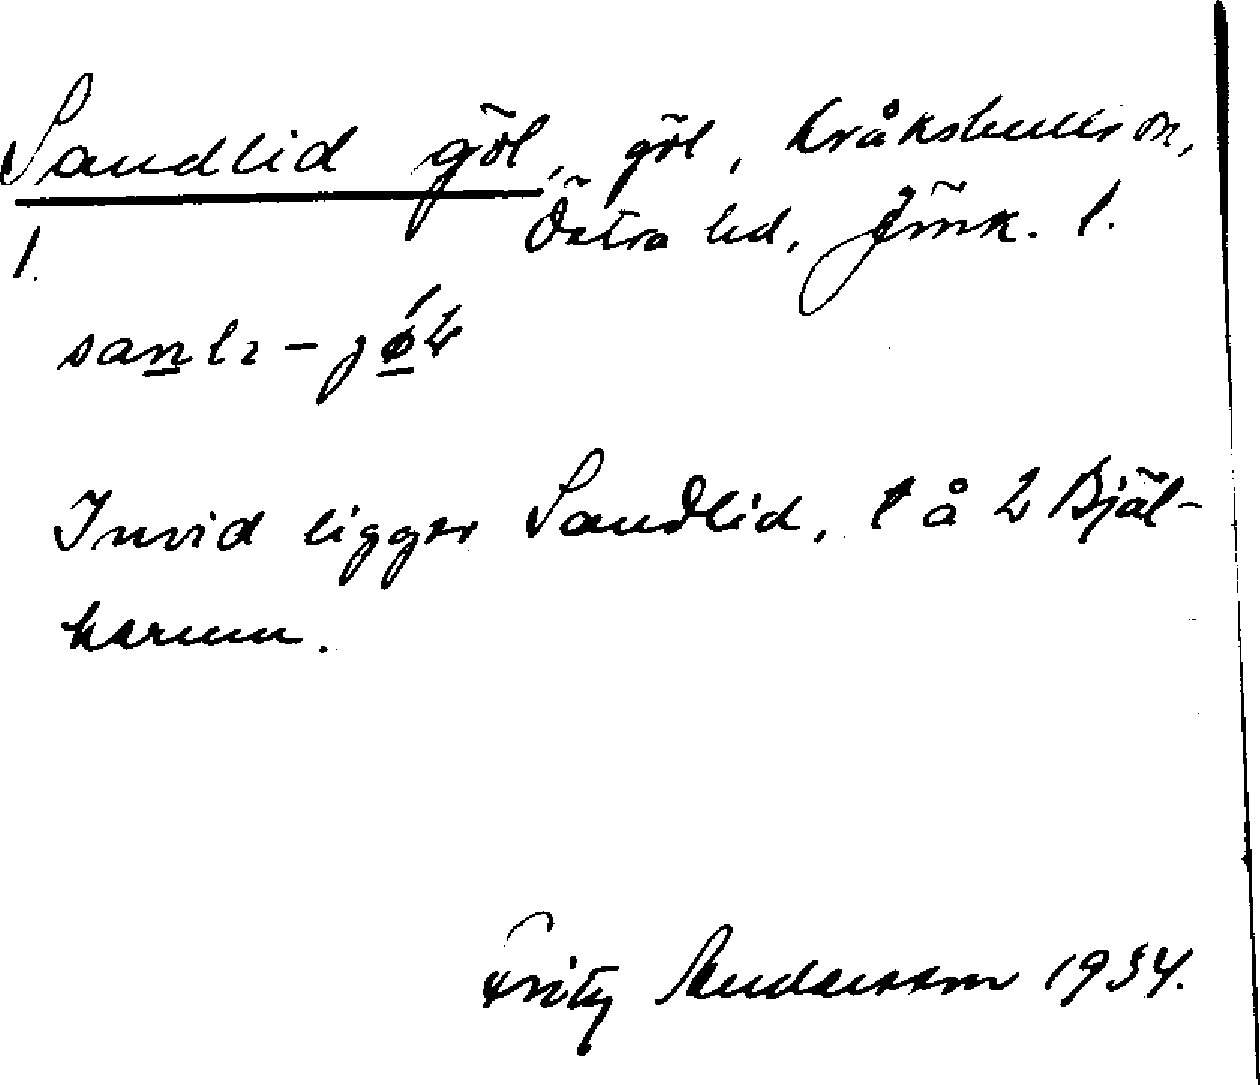 Sandlid göl, göl, Kråkshults sn,
1. Östra hd, Jönk. l.
sanlı-jøL
Invid ligger Sandlid, t å L Bjäl-
karum.
Fritz Andersson 1934.